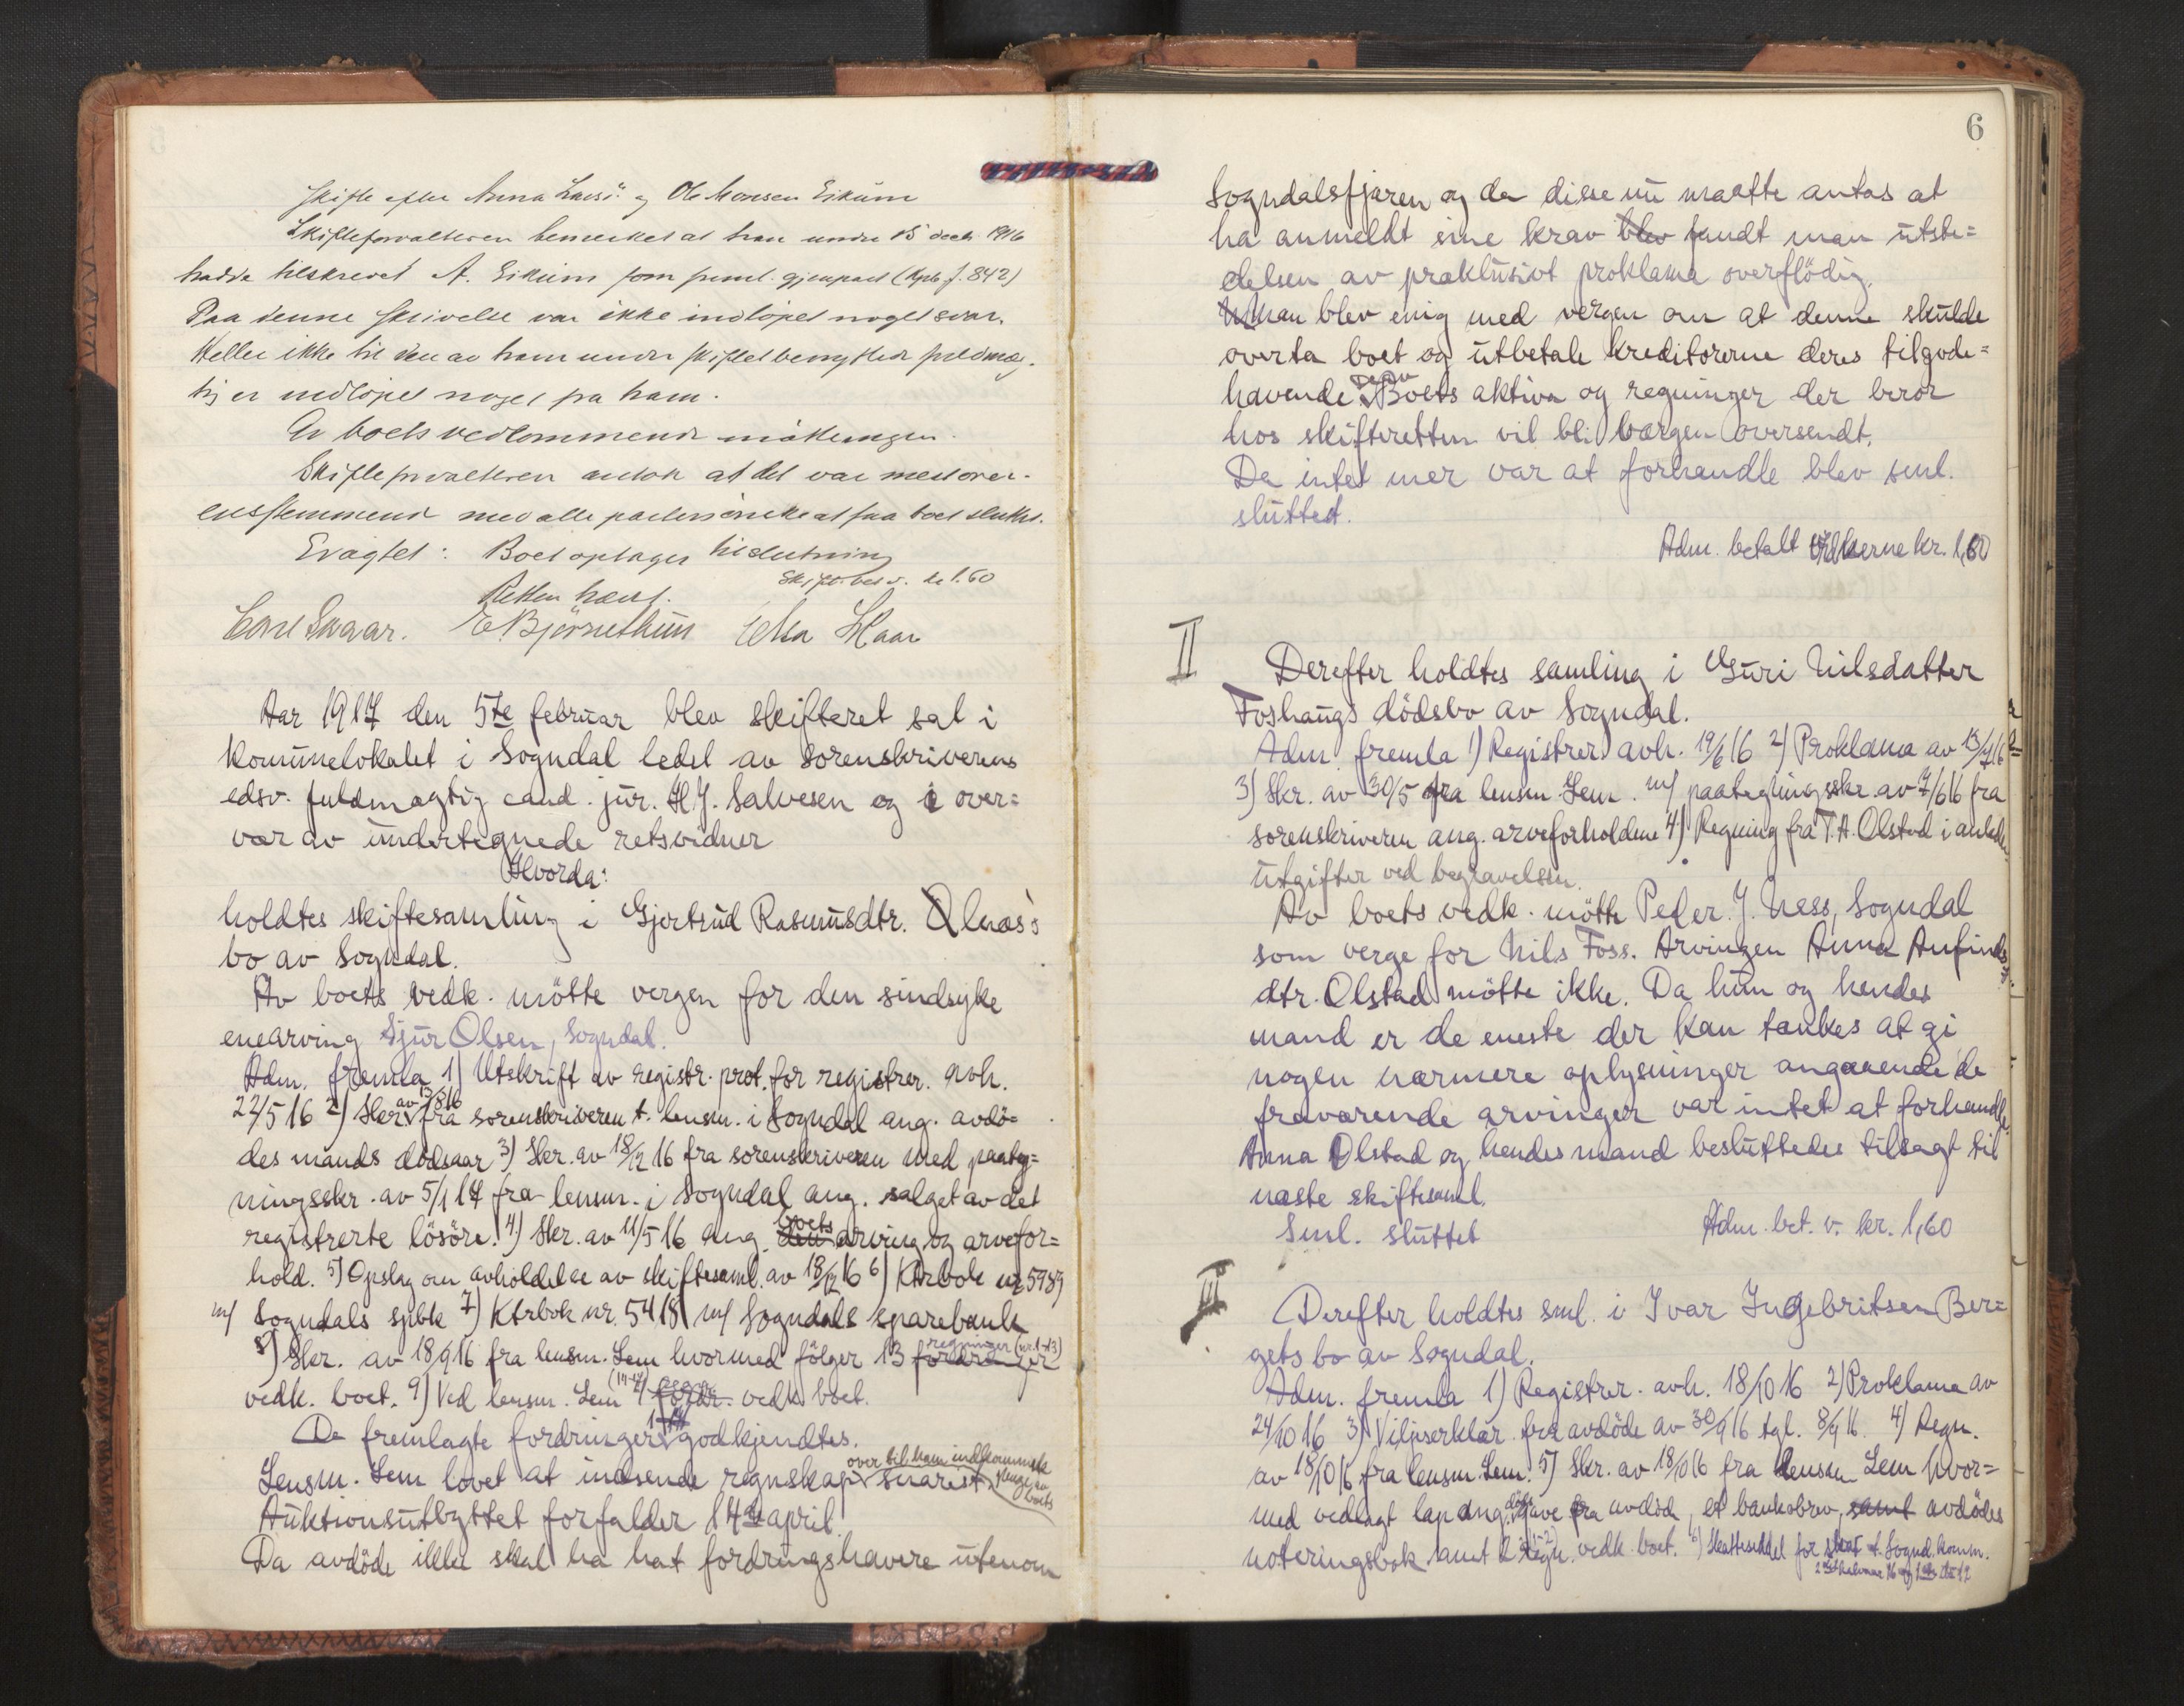 Skifte efter Anna Larsd. og Ole Monsen Eikum
Skifteforvalteren bemerket at han under 15 decb. 1916
hadde tilskrevet A. Eikum som feml. gjenpart (Kpb f. 842)
Paa denne skrivelse var ikke indløpet noget svar.
Heller ikke til den av ham under skiftet benyttede fuldmæg-
tig er indløpet noget fra ham.
Av boets vedkommende møtte ingen.
Skifteforvalteren antok at det var mest over-
ensstemmende med alle parters ønske at faa boet sluttet.
Eragtet: Boet optages til slutning
Skifov. bet. v. kr 1.60
Retten hævet.
Carl Skaar. E Bjørnethun Elsa Skaar
Aar 1917 den 5te februar blev skifteret sat i
kommunelokalet i Sogndal ledet av sorenskriverens
edsv. fuldmægtig cand. jur. H. J. Salvesen og i over=
vær av undertegnede retsvidner
Hvorda:
holdtes skiftesamling i Gjertrud Rasmusdtr. Alnæs's
bo av Sogndal.
Av boets vedk. møtte vergen for den sindsyke
enearving Sjur Olsen, Sogndal.
Adm. fremla 1) Utskrift av registr. prot. for registrer. avh.
22/5 16 2) Skr. av 15/5 16 fra sorenskriveren t. lensm. i Sogndal ang. avdø=
des mands dødsaar 3) Skr. av 18/12 16 fra sorenskriveren med paateg=
ningsskr. av 5/1 17 fra lensm. i Sogndal ang. salget av det
registrerte løsøre. 4) Skr. av 11/5 16 ang. den boets arving og arvefor=
hold. 5) Opslag om avholdelse av skiftesaml. av 18/12 16 6) Ktrbok nr 5989
m/ Sogndals spbk 7) Ktrbok nr. 5418 m/ Sogndals sparebank
8) Skr. av 18/9 16 fra lensm. Lem hvormed følger 13 fordringer regninger (nr. 1-13)
vedk. boet. 9) Ved lensm. Lem 4 (14-17) fordr. regn. vedk. boet.
De fremlagte fordringer 1-17 godkjendtes.
Lensm. Lem lovet at indsende regnskap over til ham indkommende penge av boets snarest.
Auktionsutbyttet forfalder 14de april.
Da avdøde ikke skal ha hat fordringshavere utenom
6
Sogndalsfjæren og da disse nu maatte antas at
ha anmeldt sine krav blev fandt man utste=
delsen av præklusivt proklama overflødig.
Man blev enig med vergen om at denne skulde
overta boet og utbetale kreditorerne deres tilgode=
havende derav. Boets aktiva og regninger der beror
hos skifteretten vil bli værgen oversendt.
Da intet mer var at forhandle blev sml.
sluttet.
Adm. betalt vidnerne kr. 1,60
II
Derefter holdtes samling i Guri Nilsdatter
Foshaugs dødsbo av Sogndal.
Adm. fremla 1) Registrer. avh. 19/6 16 2) Proklama av 13/7 16
3) Skr. av 30/5 fra lensm. Lem. m/ paategningsskr. av 7/6 16 fra
sorenskriveren ang. arveforholdene 4) Regning fra T. A. Olstad i anledn.
utgifter ved begravelsen.
Av boets vedk. møtte Peder J. Ness, Sogndal
som verge for Nils Foss. Arvingen Anna Anfinds
dtr. Olstad møtte ikke. Da hun og hendes
mand er de eneste der kan tænkes at gi
nogen nærmere oplysninger angaaende de
fraværende arvinger var intet at forhandle.
Anna Olstad og hendes mand besluttedes tilsagt til
næste skiftesaml.
Sml. sluttet
Adm. bet. v. kr. 1,60
III
Derefter holdtes sml. i Ivar Ingebritsen Ber=
gets bo av Sogndal.
Adm. fremla 1) Registrer. avh. 18/10 16 2) Proklama av
24/10 16 3) Viljeserklær. fra avdøde av 30/9 16 tgl. 8/9 16. 4) Regn.
av 18/10 16 fra lensm. Lem. 5) Skr. av 18/10 16 fra lensm Lem hvor=
med vedlagt lap ang. døds gave fra avdøde, et bankobrev, samt avdødes
noteringsbok samt 2 regn. (1-2) vedk. boet. 6) Skatteseddel for skat t. Sognd. komm.
2det halvaar 16